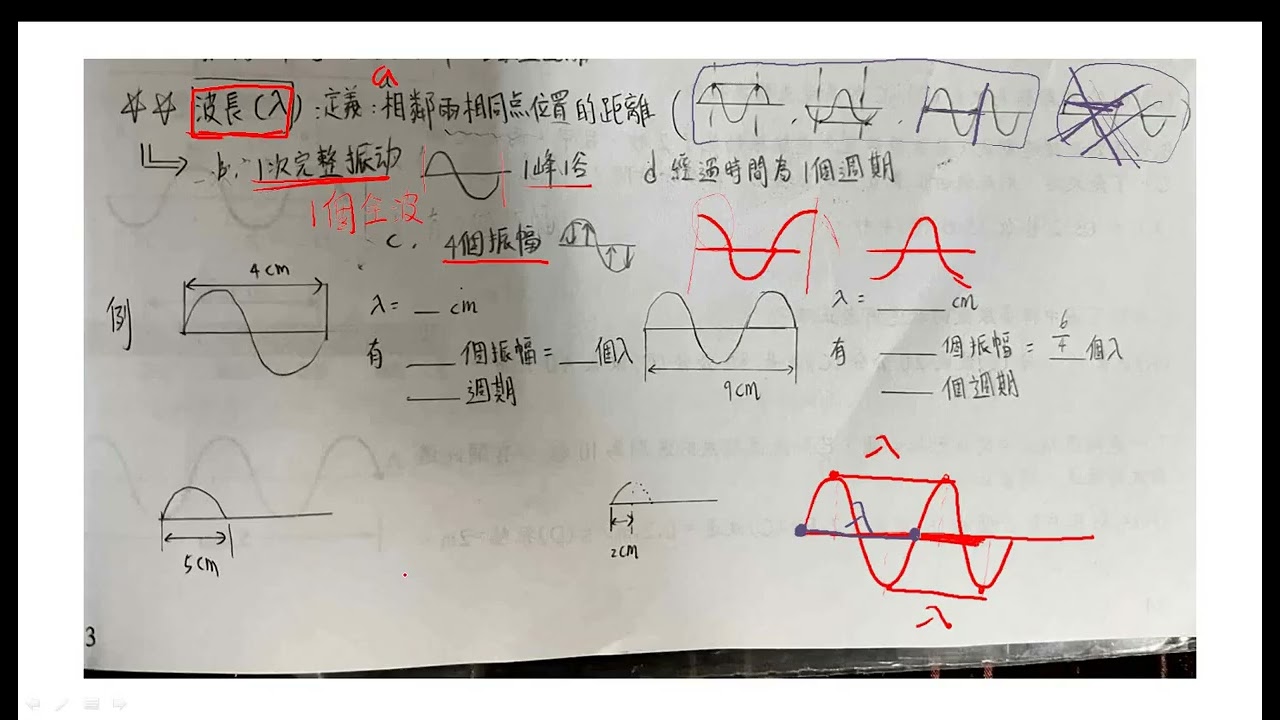 a
☆☆ 波長(λ):定義:相鄰兩相同点位置的距離( , , , )
b. 1次完整振动 1峰1谷 d 經過時間為1個週期
1個全波
c. 4個振幅
例 4cm λ= __ cm λ= ____ cm
有 ___ 個振幅= __個λ 有 ____ 個振幅= 6/4 個λ
___ 週期 9cm ___ 個週期
λ
λ
5cm 2cm
λ
3